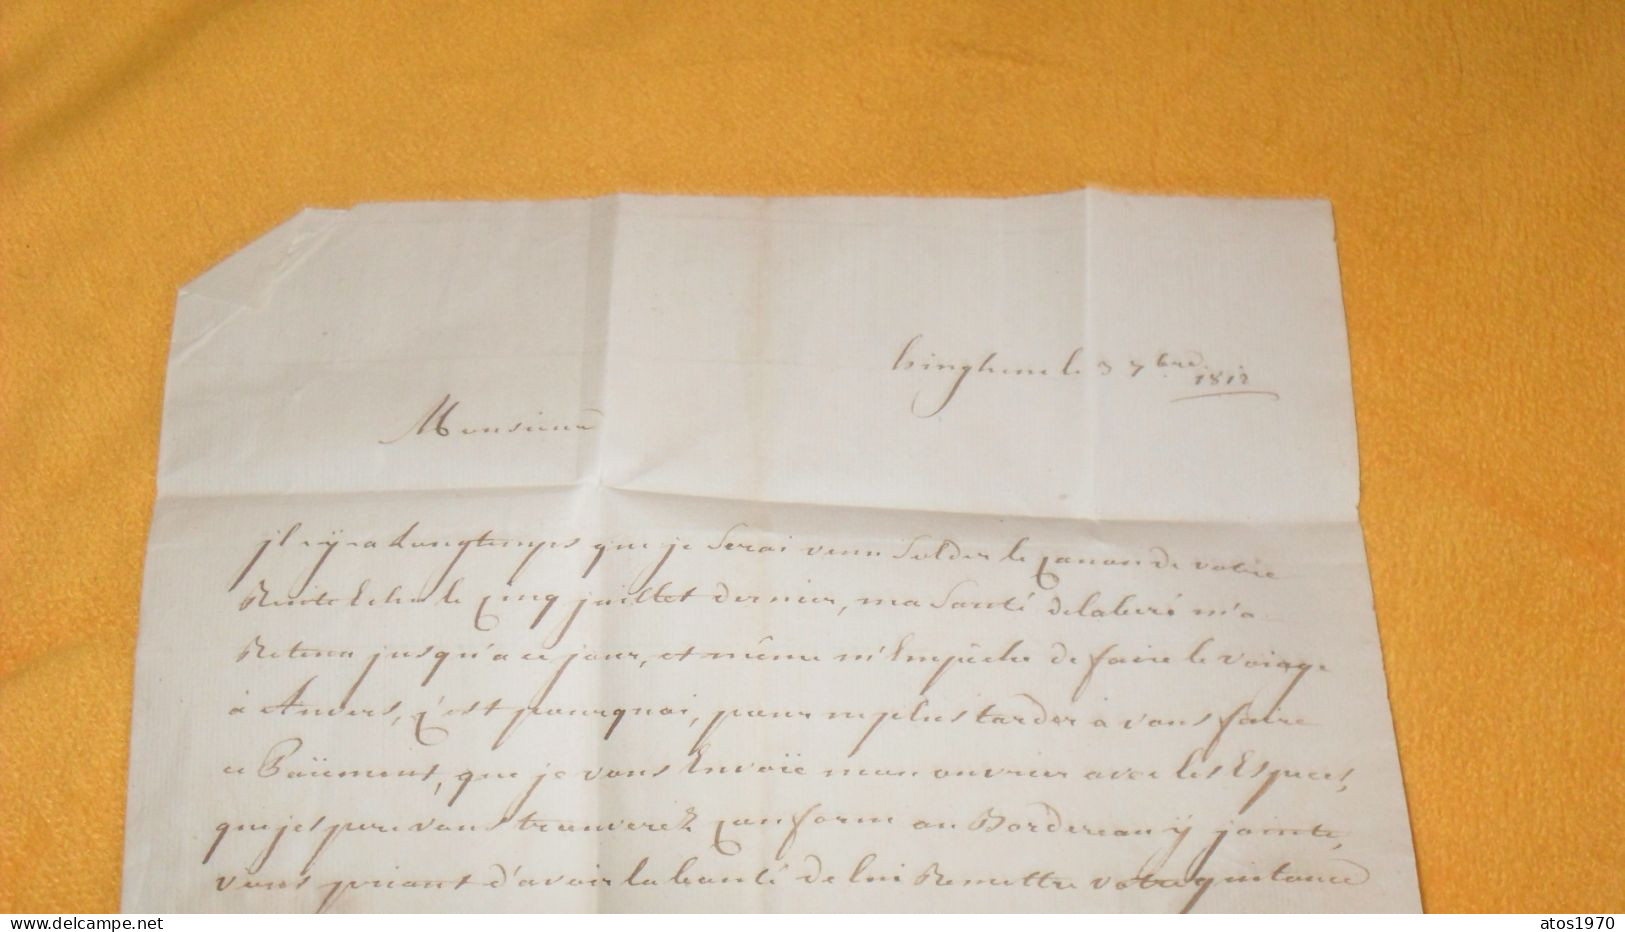 hinghene le 3 7bre
1812
Monsieur
jl ÿ a Longtemps que je Serai venu Solder le Canon de votre
Rente Echu le Cinq juillet dernier, ma Santé delaberé m'a
Retenu jusqu'a ce jour, et même m'Empêche de faire le voiage
à Anvers, C'est pourquoi, pour ne plus tarder a vous faire
ce Païement, que je vous Envoïe mon ouvrier avec les Especes,
que j'espere vous trouverez Conforme au Bordereau ÿ jointe,
vous priant d'avoir la bonté de lui Remettre votre quitance
delcampe.net
atos1970